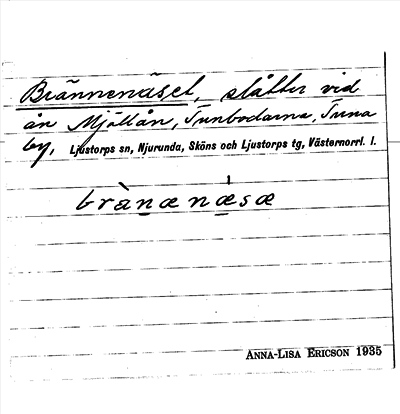 Brännenäset, slåtter vid
ån Mjällån, Tunbodarna, Tuna
by, Ljustorps sn, Njurunda, Sköns och Ljustorps tg, Västernorrl. l.
brànænǽsæ
ANNA-LISA ERICSON 1935